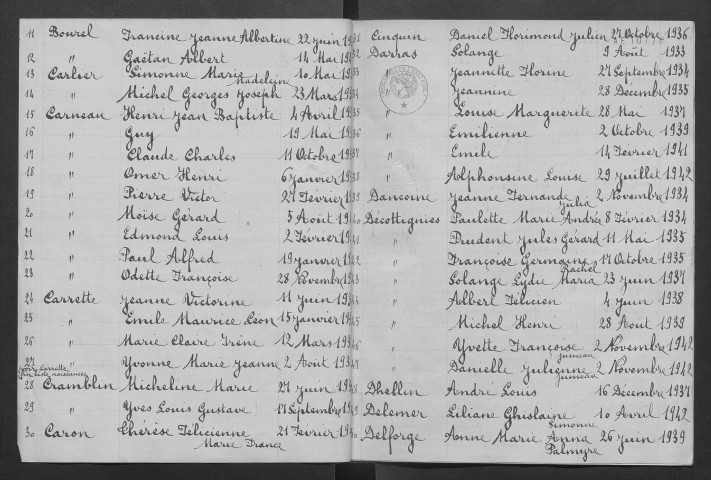 11 Bourel Francine Jeanne Albertine 22 juin 19
12 " Gaëtan Albert 14 Mai 19
13 Carlier Simonne Marie Madeleine 10 Mai 19
14 " Michel Georges Joseph 23 Mars 19
15 Carneau Henri Jean Baptiste 4 Avril 19
16 " Guy 19 Mai 19
17 " Claude Charles 11 Octobre 19
18 " Omer Henri 6 janvier 19
19 " Pierre Victor 27 Février 19
20 " Moïse Gérard 5 Août 19
21 " Edmond Louis 2 Février 19
22 " Paul Alfred 19 janvier 19
23 " Odette Françoise 28 Novembre 19
24 Carrette Jeanne Victorine 11 juin 19
25 " Emile Maurice Léon 15 janvier 19
26 " Marie Claire Irène 12 Mars 19
27 " Yvonne Marie Jeanne 2 Août 19
28 Cramblin Micheline Marie 27 juin 19
29 " Yves Louis Gustave 17 Septembre 19
30 Caron Thérèse Félicienne 21 Février 19
Marie France
31 Cinquin Daniel Florimond Julien 27 Octobre 1936
32 Darras Solange 9 Août 1933
33 " Jeannette Florine 27 Septembre 1934
34 " Jeannine 28 Décembre 1935
" Louise Marguerite 28 Mai 1937
" Emilienne 2 Octobre 1939
" Emile 14 Février 1941
" Alphonsine Louise 29 juillet 1942
Dancoine Jeanne Fernande Julia 2 Novembre 1934
40 Décottignies Paulette Marie Andrée 8 Février 1934
41 " Prudent Jules Gérard 11 Mai 1935
42 " Françoise Germaine Rachel 17 Octobre 1935
43 " Solange Lydie Maria 23 juin 1937
44 " Albert Félicien 4 juin 1938
45 " Michel Henri 28 Août 1939
46 " Yvette Françoise jumeau 2 Novembre 1942
47 " Danielle Julienne jumeau 2 Novembre 1942
48 Dhellin André Louis 16 Décembre 1937
49 Delemer Liliane Ghislaine 10 Avril 1942
50 Delforge Anne Marie Anna Simonne 26 juin 1939
Palmyre